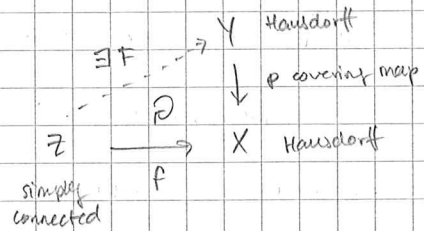 Y Hausdorff
∃F
p covering map
Z
X Hausdorff
f
simply
connected